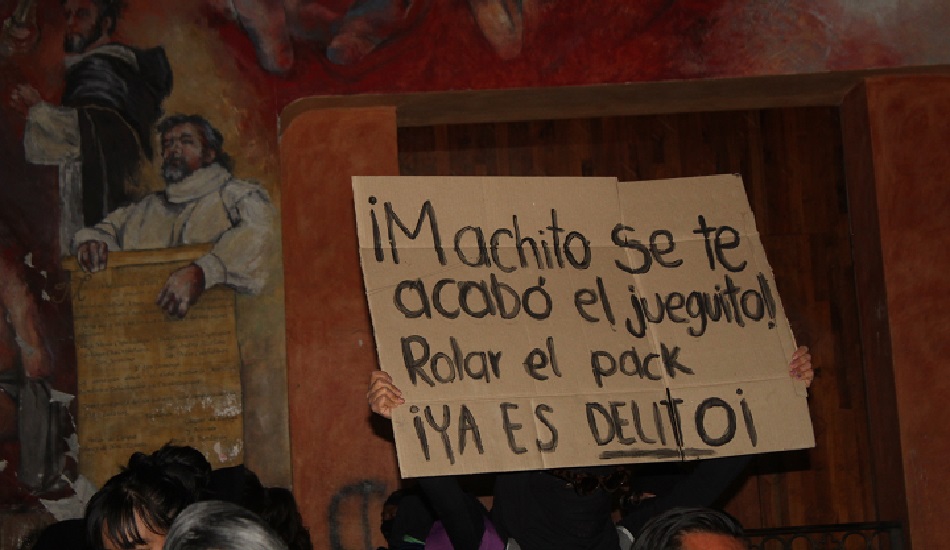 ¡Machito se te
acabó el jueguito!
Rolar el pack
¡YA ES DELITO¡